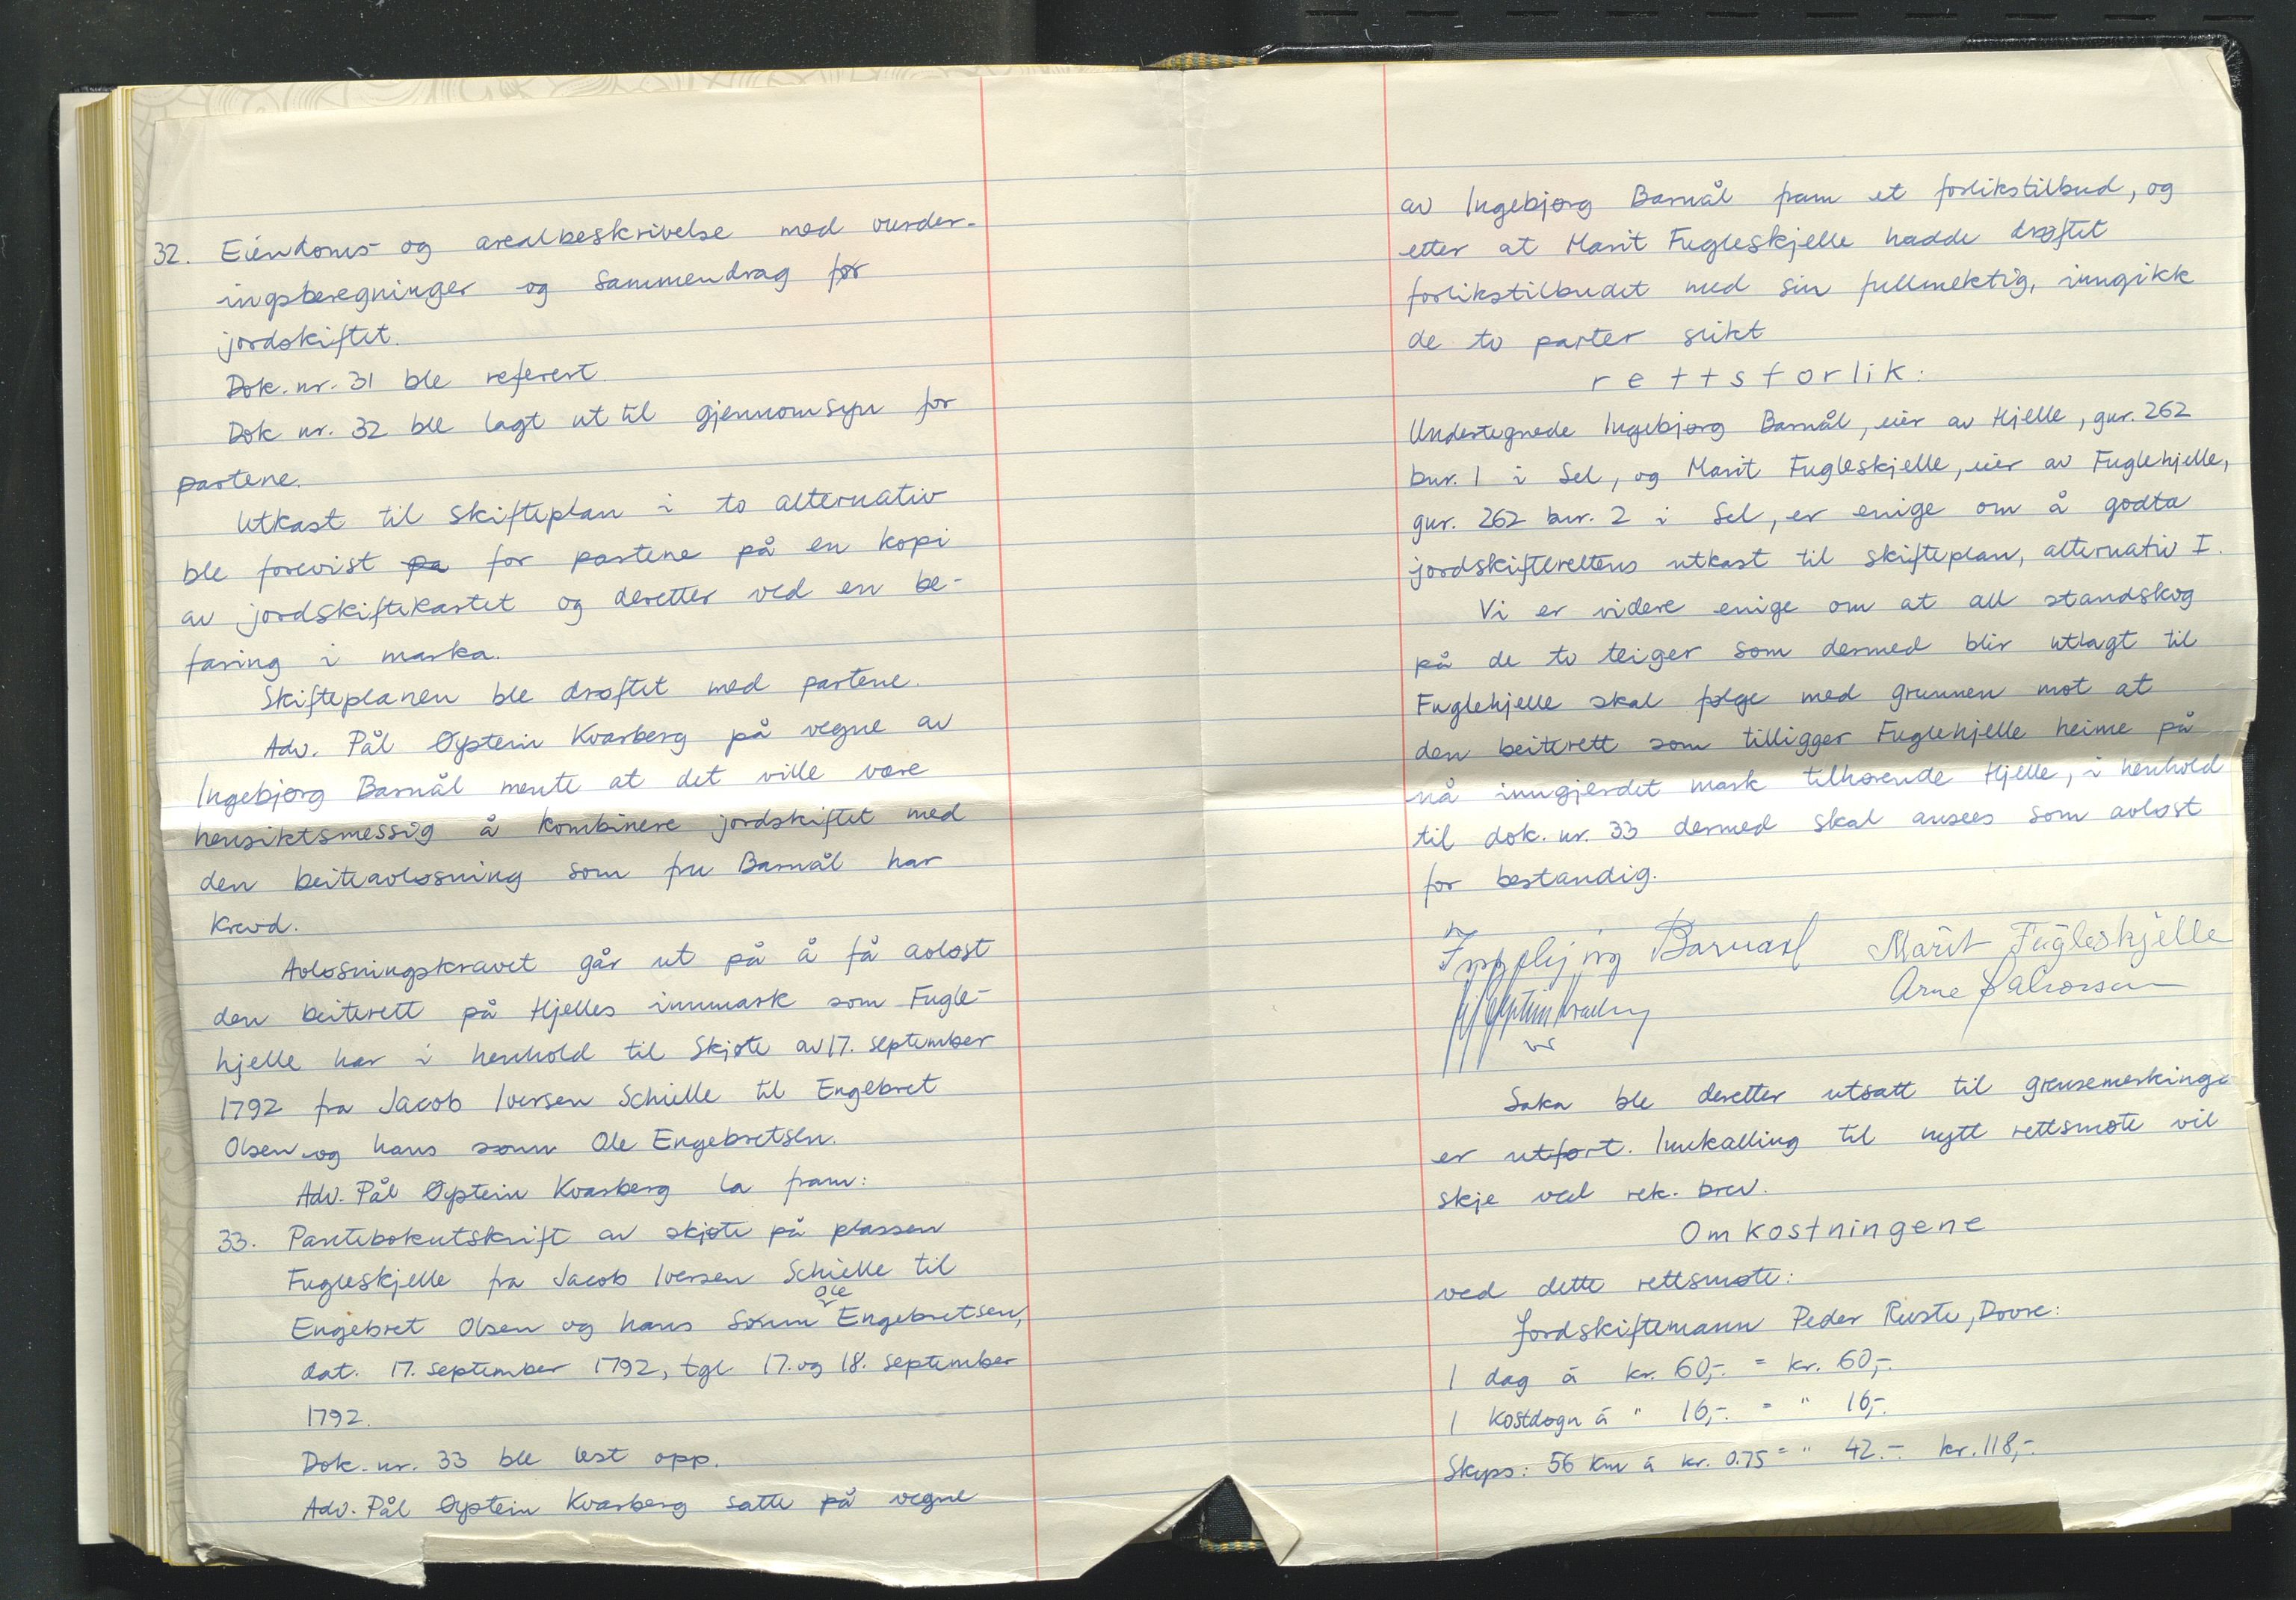 32. Eiendoms- og arealbeskrivelse med vurder-
ingsberegninger og sammendrag før
jordskiftet.
Dok. nr. 31 ble referert.
Dok nr. 32 ble lagt ut til gjennomsyn for
partene.
Utkast til skifteplan i to alternativ
ble forevist på for partene på en kopi
av jordskiftekartet og deretter ved en be-
faring i marka.
Skifteplanen ble drøftet med partene.
Adv. Pål Øystein Kvarberg på vegne av
Ingebjørg Barnål mente at det ville være
hensiktsmessig å kombinere jordskiftet med
den beiteavløsning som fru Barnål har
krevd.
Avløsningskravet går ut på å få avløst
den beiterett på Hjelles innmark som Fugle-
hjelle har i henhold til skjøte av 17. september
1792 fra Jacob Iversen Schielle til Engebret
Olsen og hans sønn Ole Engebretsen.
Adv. Pål Øystein Kvarberg la fram:
33. Pantebokutskrift av skjøte på plassen
Fugleskjelle fra Jacob Iversen Schielle til
Engebret Olsen og hans Sønn Ole Engebretsen,
dat. 17. september 1792, tgl. 17. og 18. september
1792.
Dok. nr. 33 ble lest opp.
Adv. Pål Øystein Kvarberg satte på vegne
av Ingebjørg Barnål fram et forlikstilbud, og
etter at Marit Fugleskjelle hadde drøftet
forlikstilbudet med sin fullmektig, inngikk
de to parter slikt
rettsforlik:
Undertegnede Ingebjørg Barnål, eier av Hjelle, gnr. 262
bnr. 1 i Sel, og Marit Fugleskjelle, eier av Fuglehjelle,
gnr. 262 bnr. 2 i Sel, er enige om å godta
jordskifterettens utkast til skifteplan, alternativ I.
Vi er videre enige om at all standskog
på de to teiger som dermed blir utlagt til
Fuglehjelle skal følge med grunnen mot at
den beiterett som tilligger Fuglehjelle heime på
nå inngjerdet mark tilhørende Hjelle, i henhold
til dok. nr. 33 dermed skal ansees som avløst
for bestandig.
Ingebjørg Barnaal Marit Fugleskjelle
Arne
Saka ble deretter utsatt til grensemerkinga
er utført. Innkalling til nytt rettsmøte vil
skje ved rek. brev.
Omkostningene
ved dette rettsmøte:
Jordskiftemann Peder Ruste, Dovre:
1 dag á kr. 60,-. = kr. 60,-.
1 kostdøgn á " 16,-. = " 16,-.
Skyss: 56 km á kr. 0.75 = " 42.-. kr. 118,-.